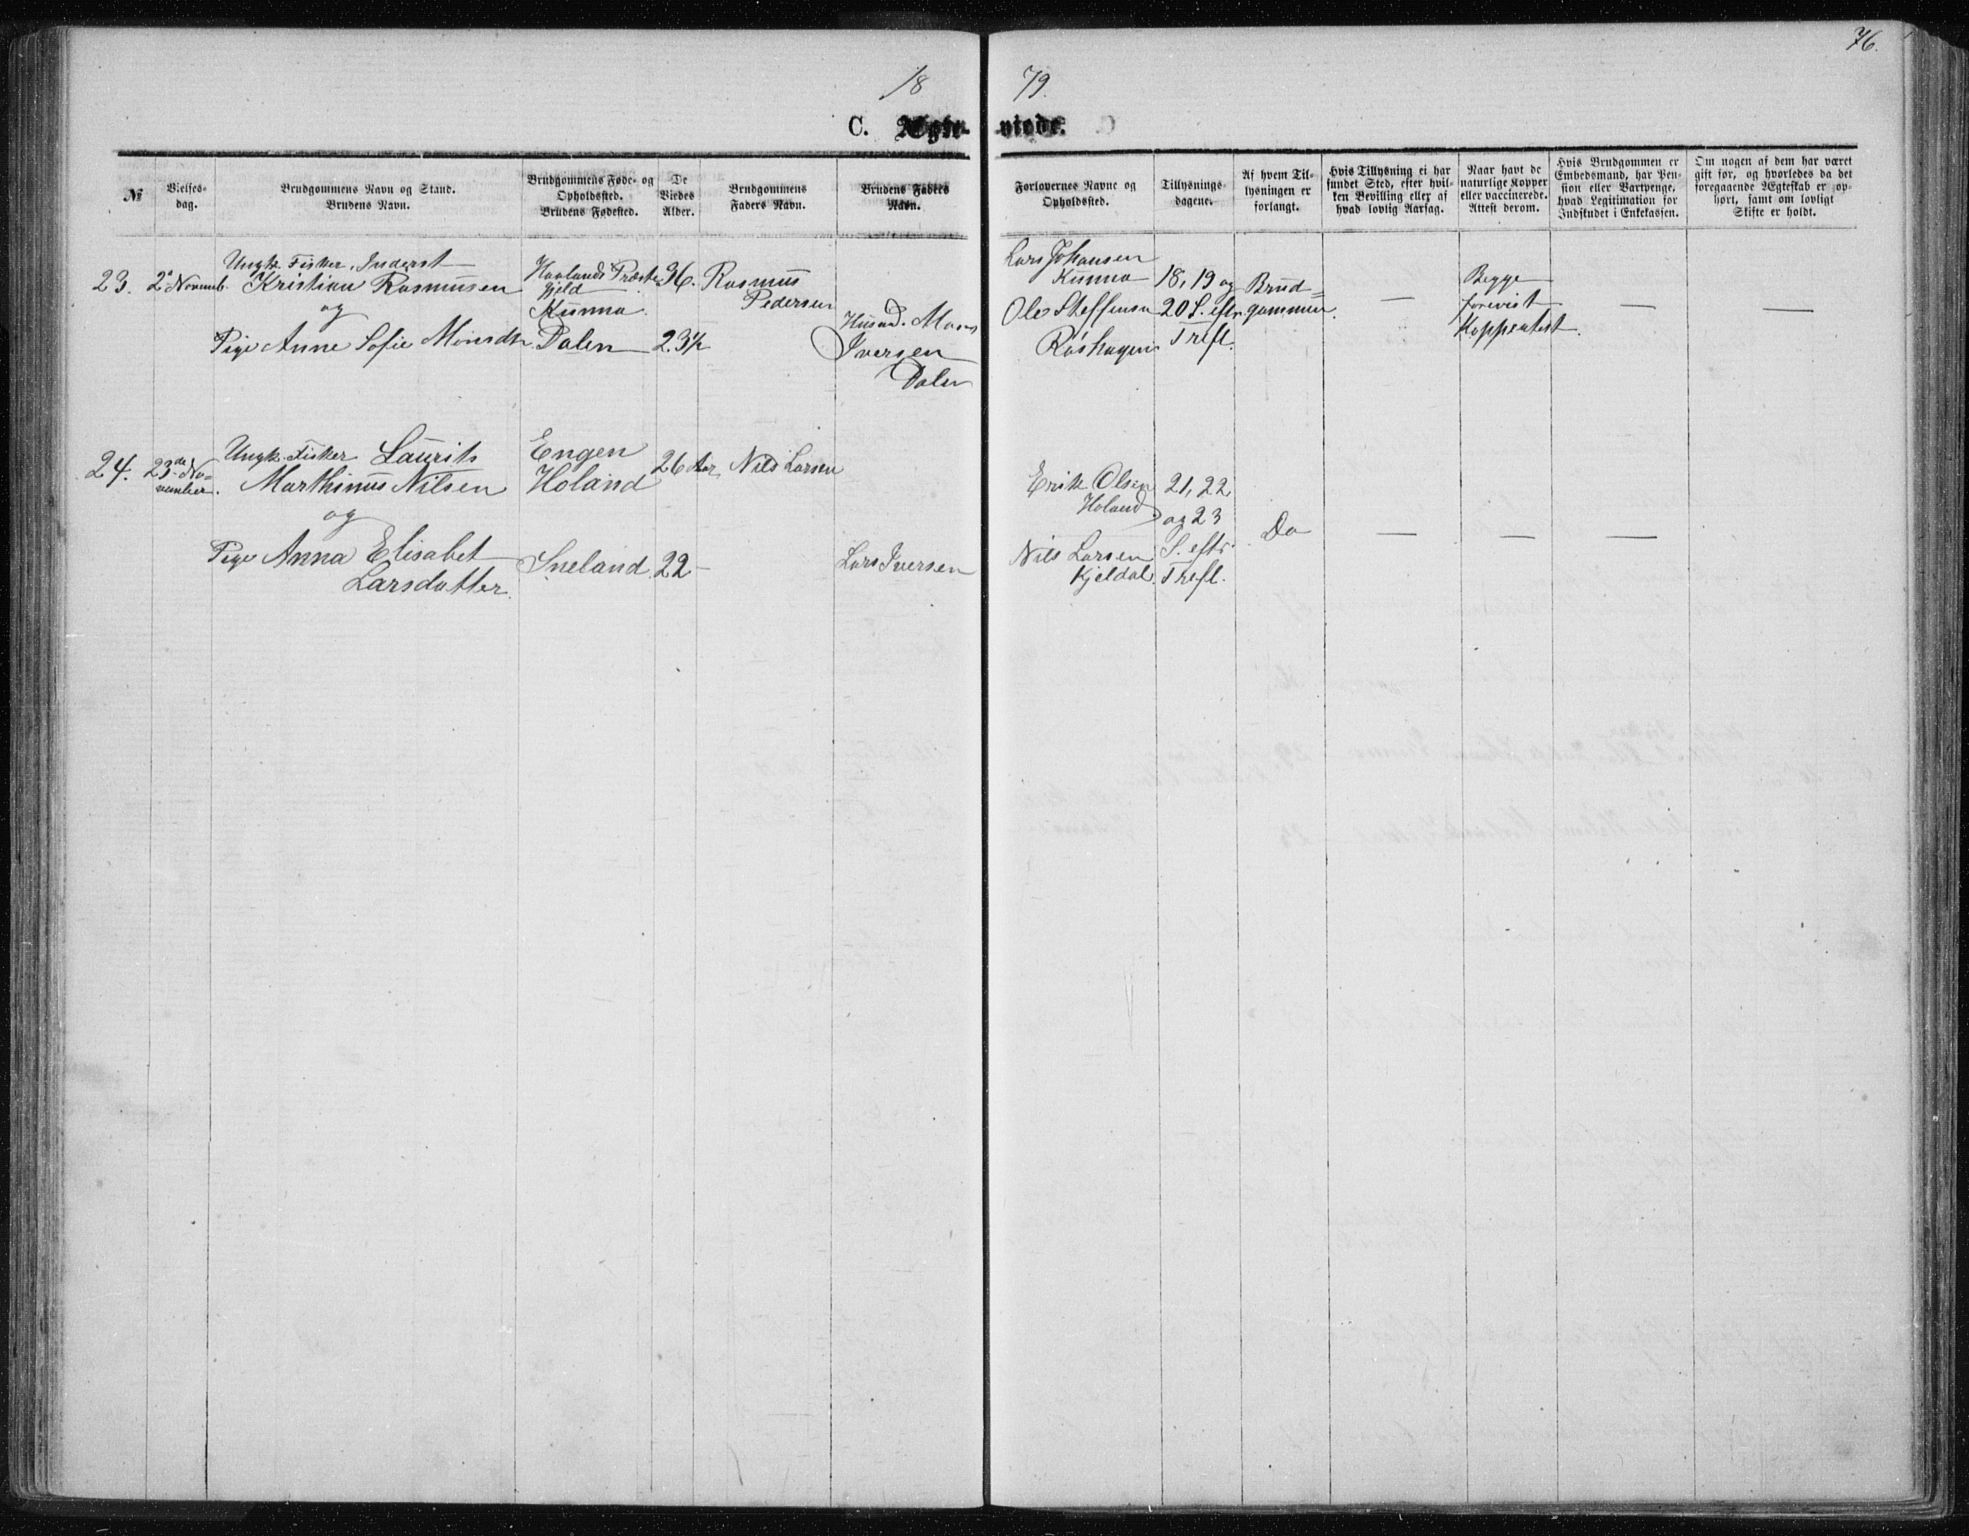 76.
18 79.
C. Ægte- viede.
№
Vielses-
dag.
Brudgommens Navn og Stand.
Brudens Navn.
Brudgommens Føde- og
Opholdssted.
Brudens Fødested.
De
Viedes
Alder.
Brudgommens
Faders Navn.
Brudens Faders
Navn.
Forlovernes Navne og
Opholdssted.
Tillysnings-
dagene.
Af hvem Til-
lysningen er
forlangt.
Hvis Tillysning ei har
fundet Sted, efter hvil-
ken Bevilling eller af
hvad lovlig Aarsag.
Naar havt de
naturlige Kopper
eller vaccinerede.
Attest derom.
Hvis Brudgommen er
Embedsmand, har Pen-
sion eller Vartpenge,
hvad Legitimation for
Indskudet i Enkekassen.
Om nogen af dem har været
gift før, og hvorledes da det
foregaaende Ægteskab er op-
hørt, samt om lovligt
Skifte er holdt.
23.
2. Novemb.
Ungk. Fisker, Inderst
Kristian Rasmussen
og
Pige Anne Sofie Monsdtr
Præste
gjeld
Kunna.
Dalen
36.
23½
Rasmus
Pedersen
Husmd. Mons
Iversen
Dalen
Lars Johansen
Kunna
Ole Steffensen
Røshagen
18, 19 og
20 S. eftr.
Trefl.
Brud=
gommen.
—
Begge
forevist
Koppeattest.
—
—
24.
23de No=
vember.
Ungk. Fisker Laurits
Marthinus Nilsen
og
Pige Anna Elisabet
Larsdatter.
Engen
Holand
Sneland.
26 Aar
22 -
Nils Larsen
Lars Iversen
Erik Olsen
Holand
Nils Larsen
Kjeldal.
21, 22
og 23
S. eftr.
Trefl.
Do
—
—
—